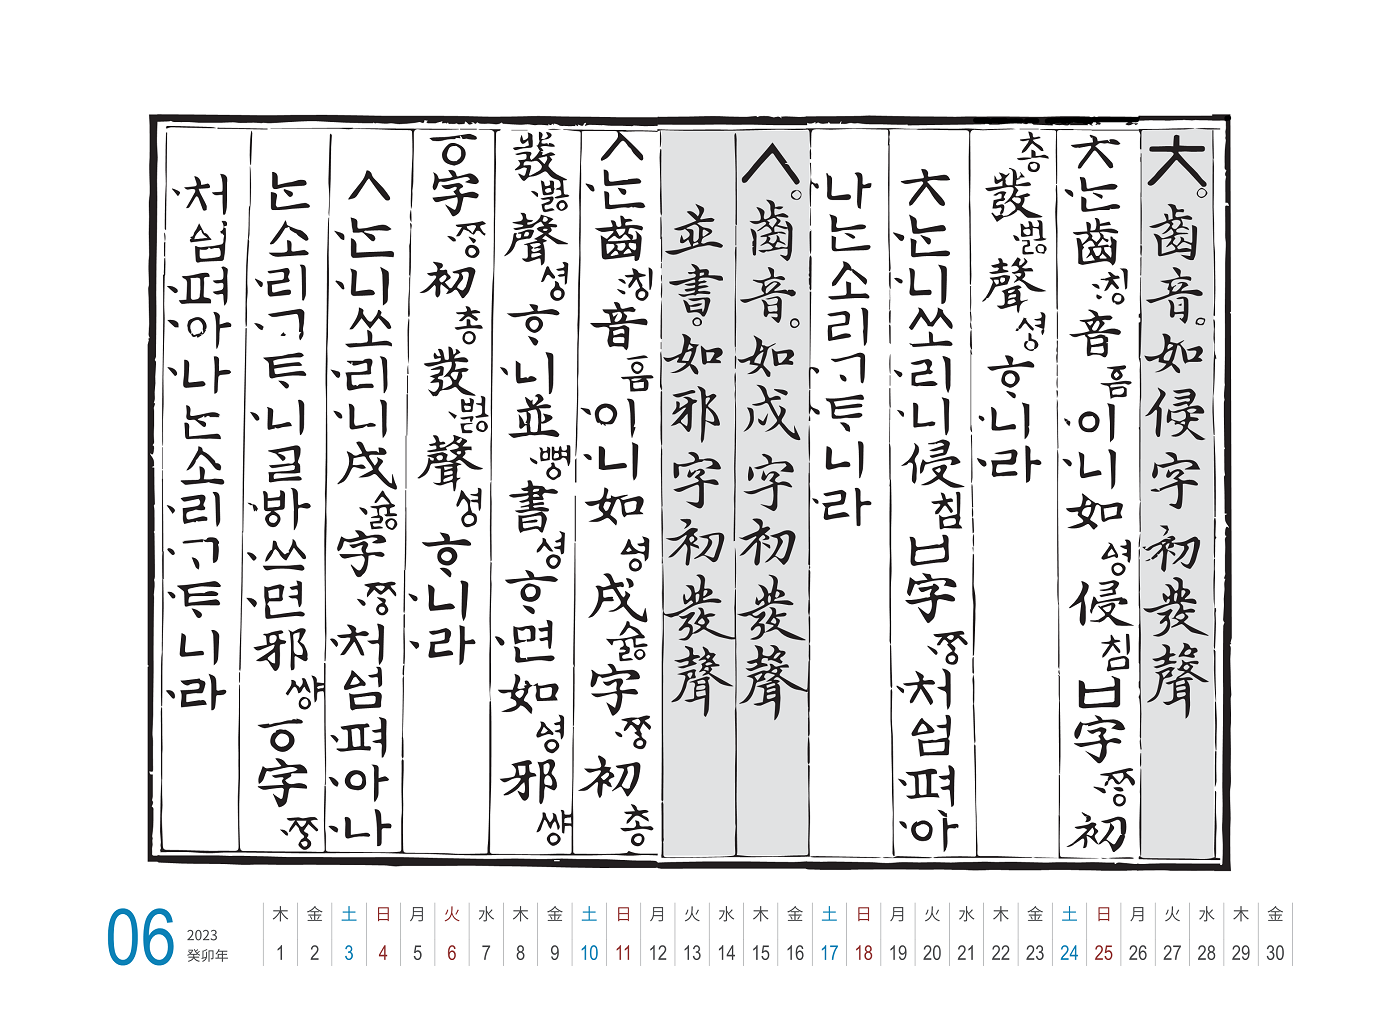 ㅊ。齒音。如侵字初發聲
ㅊ·ᄂᆞᆫ齒:칭音ᅙᅳᆷ·이·니如ᅀᅧᆼ侵침ㅂ字·ᄍᆞᆼ初
총發·벓聲셩ᄒᆞ·니·라
ㅊ·ᄂᆞᆫ·니쏘·리·니侵침ㅂ字·ᄍᆞᆼ·처ᅀᅥᆷ·펴·아
·나ᄂᆞᆫ소·리·ᄀᆞ·ᄐᆞ·니·라
ㅅ。齒音。如戌字初發聲
並書。如邪字初發聲
ㅅ·ᄂᆞᆫ齒:칭音ᅙᅳᆷ·이·니如ᅀᅧᆼ戌·슗字·ᄍᆞᆼ初총
發·벓聲셩ᄒᆞ·니並·뼝書셩ᄒᆞ·면如ᅀᅧᆼ邪썅
ㆆ字·ᄍᆞᆼ初총發·벓聲셩ᄒᆞ·니·라
ㅅ·ᄂᆞᆫ·니쏘·리·니戌·슗字·ᄍᆞᆼ·처ᅀᅥᆷ·펴·아·나
ᄂᆞᆫ소·리·ᄀᆞᄐᆞ·니ᄀᆞᆯ·ᄫᅡ·쓰·면邪썅ㆆ字·ᄍᆞᆼ
·처ᅀᅥᆷ·펴·아·나ᄂᆞᆫ소·리·ᄀᆞ·ᄐᆞ니·라
06
2023
癸卯年
木 金 土 日 月 火 水 木 金 土 日 月 火 水 木 金 土 日 月 火 水 木 金 土 日 月 火 水 木 金
1 2 3 4 5 6 7 8 9 10 11 12 13 14 15 16 17 18 19 20 21 22 23 24 25 26 27 28 29 30